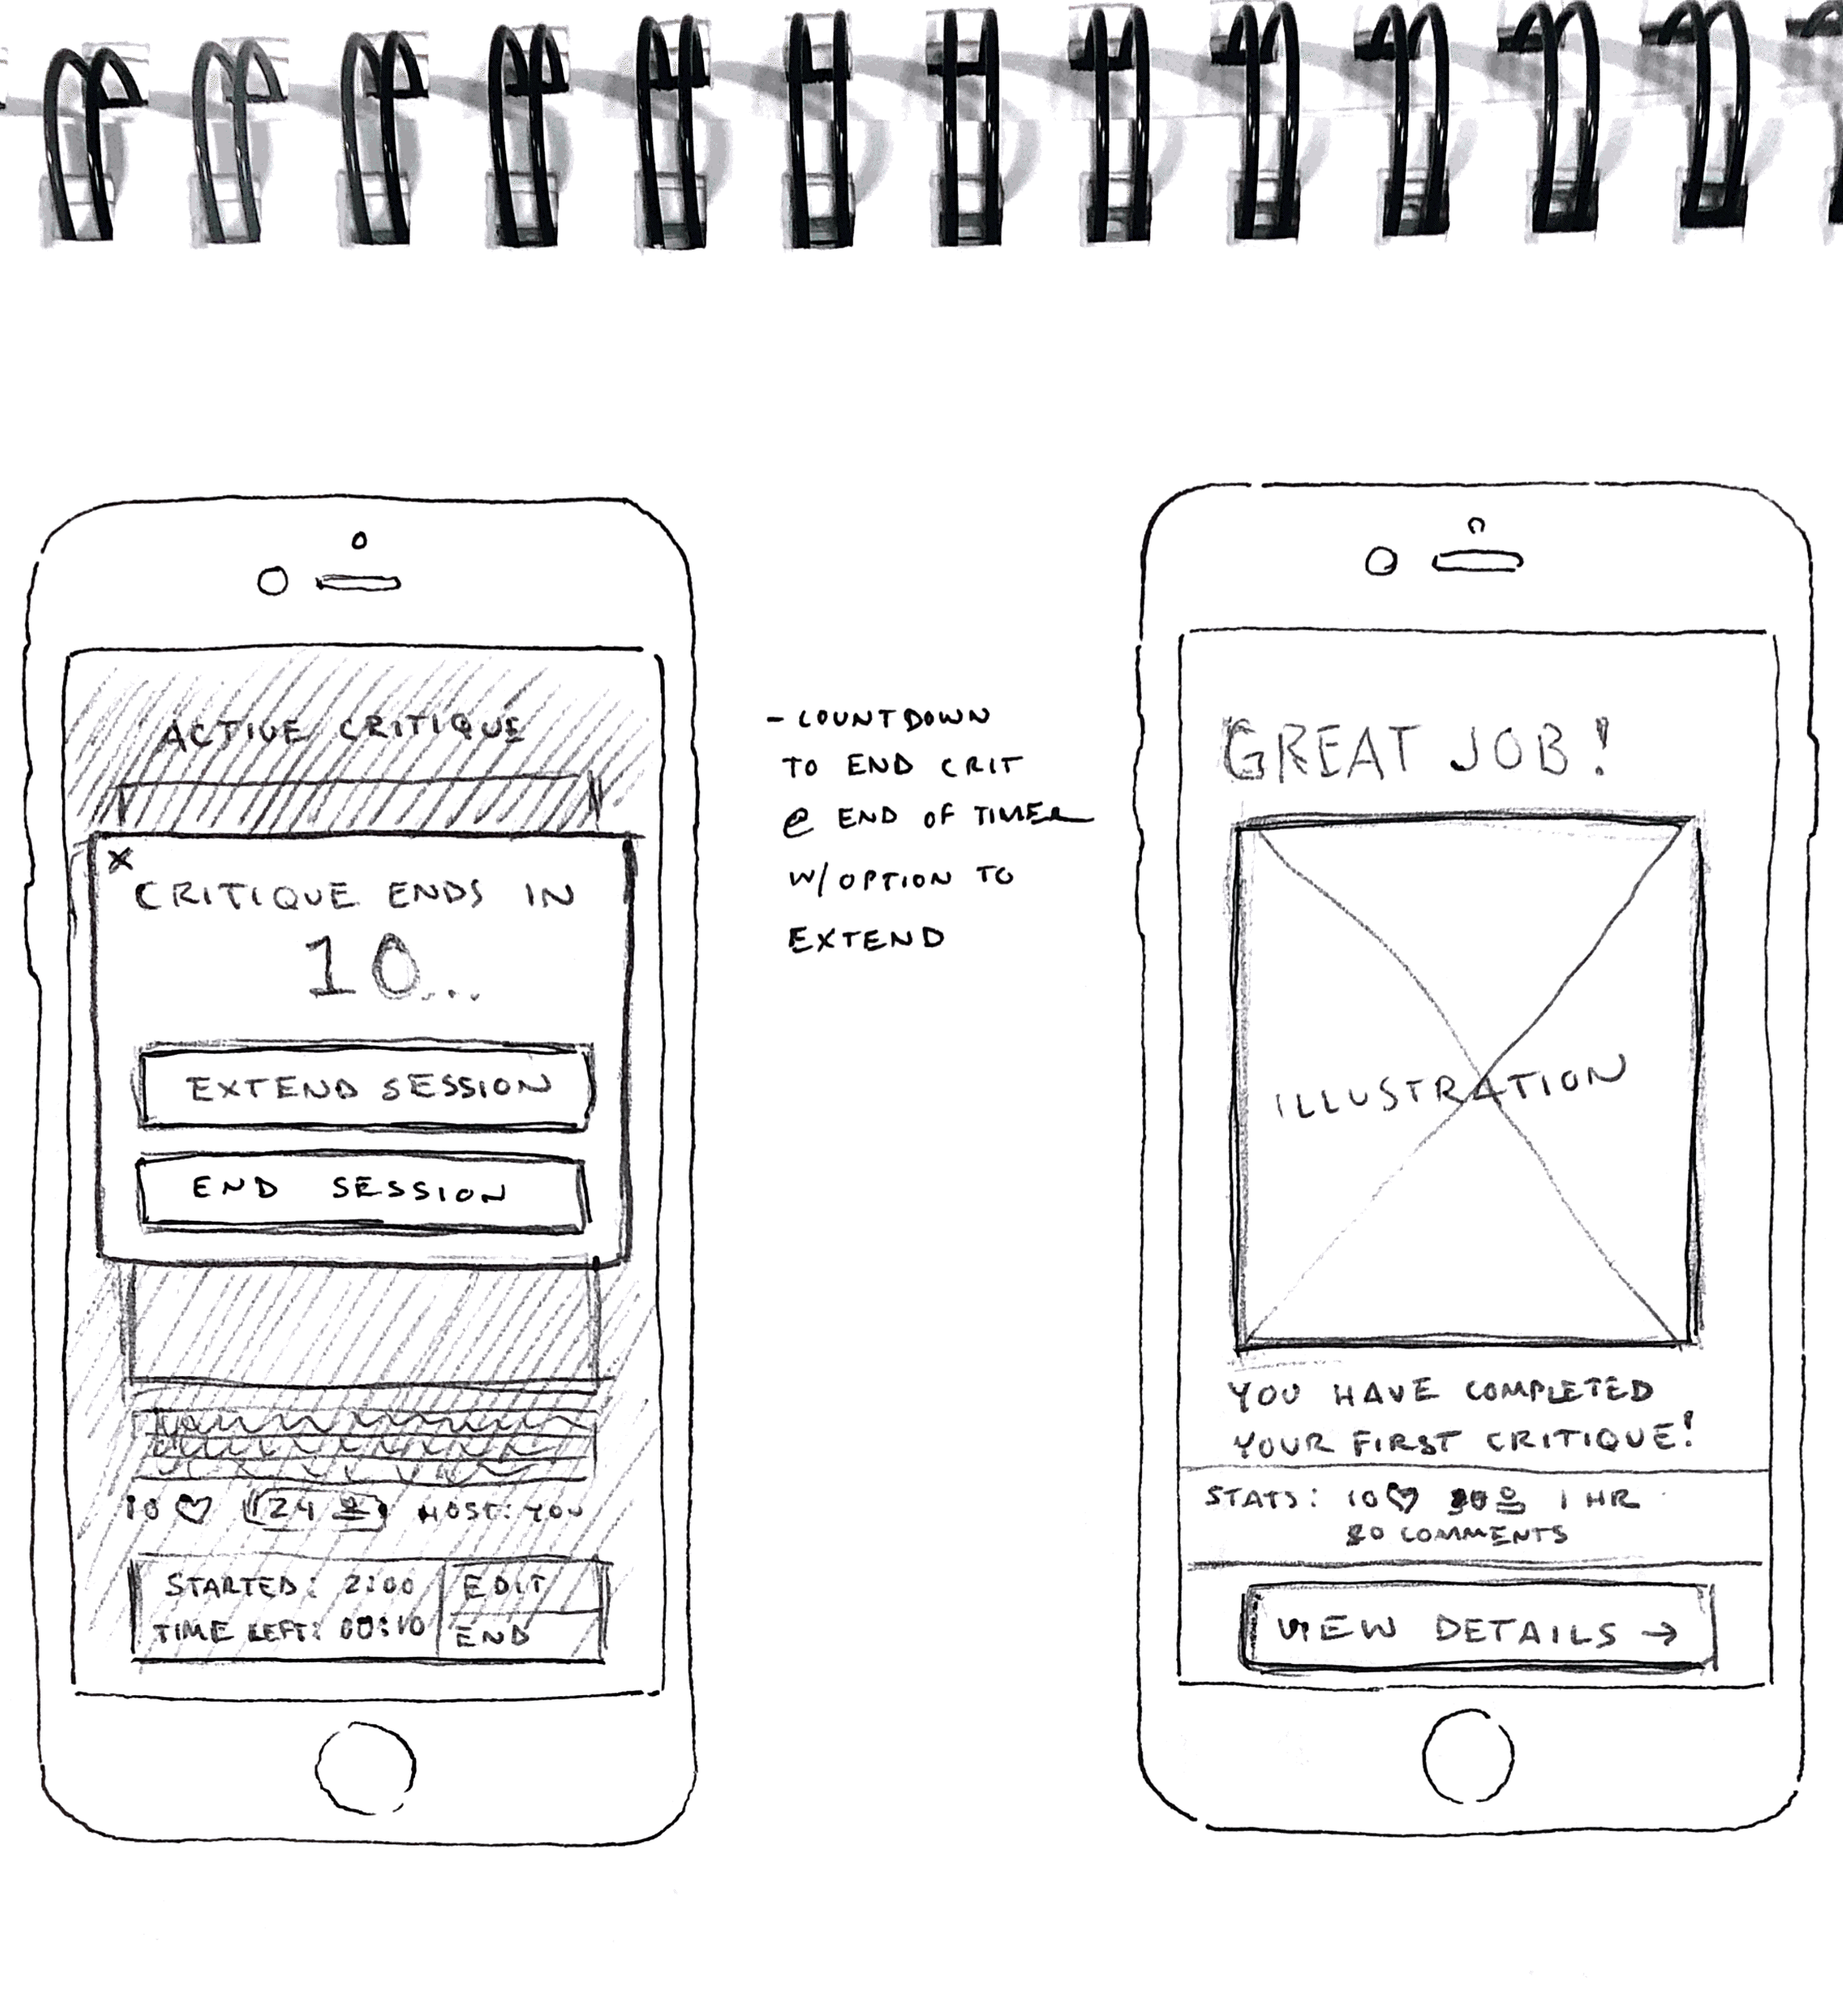 ACTIVE CRITIQUE
X
CRITIQUE ENDS IN
10...
EXTEND SESSION
END SESSION
10 ♡ 24 HOST: YOU
STARTED: 2:00
TIME LEFT: 00:10
EDIT
END
- COUNTDOWN
TO END CRIT
@ END OF TIMER
W/ OPTION TO
EXTEND
GREAT JOB!
ILLUSTRATION
YOU HAVE COMPLETED
YOUR FIRST CRITIQUE!
STATS: 10 ♡ 1 HR
COMMENTS
VIEW DETAILS →